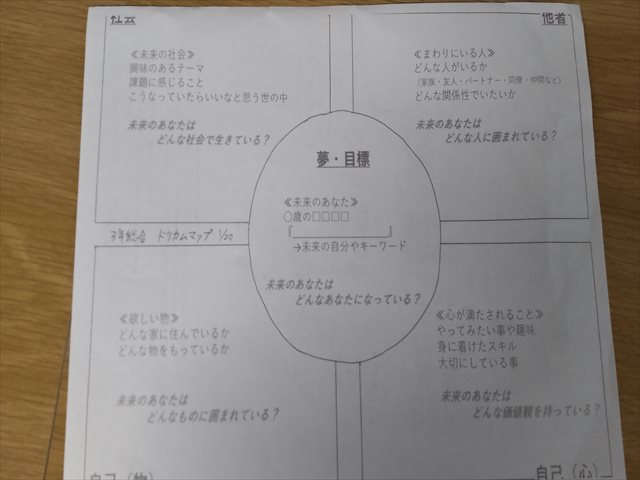 社会
≪未来の社会≫
興味のあるテーマ
課題に感じること
こうなっていたらいいなと思う世の中
未来のあなたは
どんな社会で生きている？
他者
≪まわりにいる人≫
どんな人がいるか
（家族・友人・パートナー・同僚・仲間など）
どんな関係性でいたいか
未来のあなたは
どんな人に囲まれている？
夢・目標
≪未来のあなた≫
○歳の□□□□
『＿＿＿＿＿＿＿＿』
→未来の自分やキーワード
未来のあなたは
どんなあなたになっている？
3年総合 ドリカムマップ 1/20
≪欲しい物≫
どんな家に住んでいるか
どんな物をもっているか
未来のあなたは
どんなものに囲まれている？
自己（物）
≪心が満たされること≫
やってみたい事や趣味
身に着けたスキル
大切にしている事
未来のあなたは
どんな価値観を持っている？
自己（心）